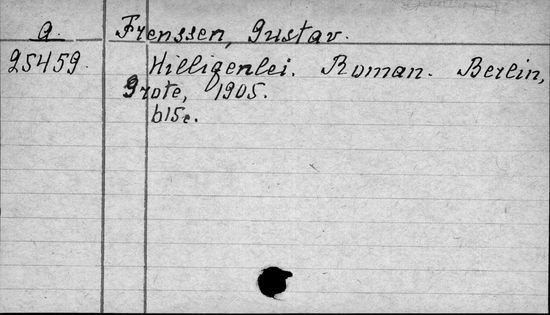 a. Frenssen, Gustav.
25459. Hilligenlei. Roman. Berlin,
Grote, 1905.